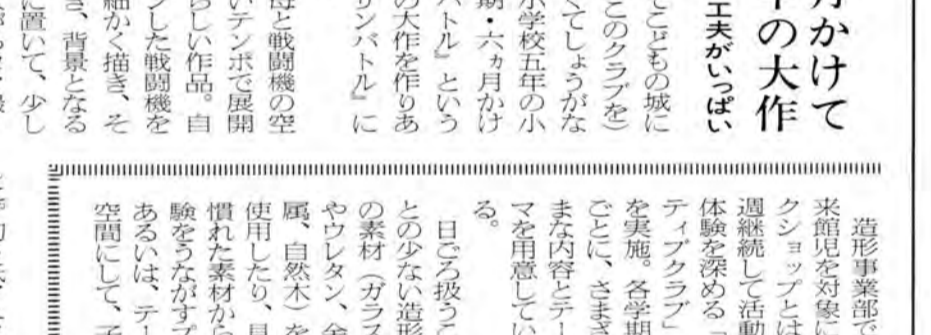 月かけて
の大作
工夫がいっぱい
てこどもの城に
くてしょうがな
このクラブを)
小学校五年の小
期・六ヵ月かけ
バトル』という
の大作を作りあ
サンバトル』に
母と戦闘機の空
いテンポで展開
らしい作品。自
ンした戦闘機を
細かく描き、そ
き、背景となる
に置いて、少し
造形事業部で
来館児を対象に
クショップとは
週継続して活動
体験を深める「
ティブクラブ」
を実施。各学期
ごとに、さまざ
まな内容とテー
マを用意してい
る。
日ごろ扱うこ
との少ない造形
の素材（ガラス
やウレタン、金
属、自然木）を
使用したり、見
慣れた素材から
験をうながすプ
あるいは、テー
空間にして、子